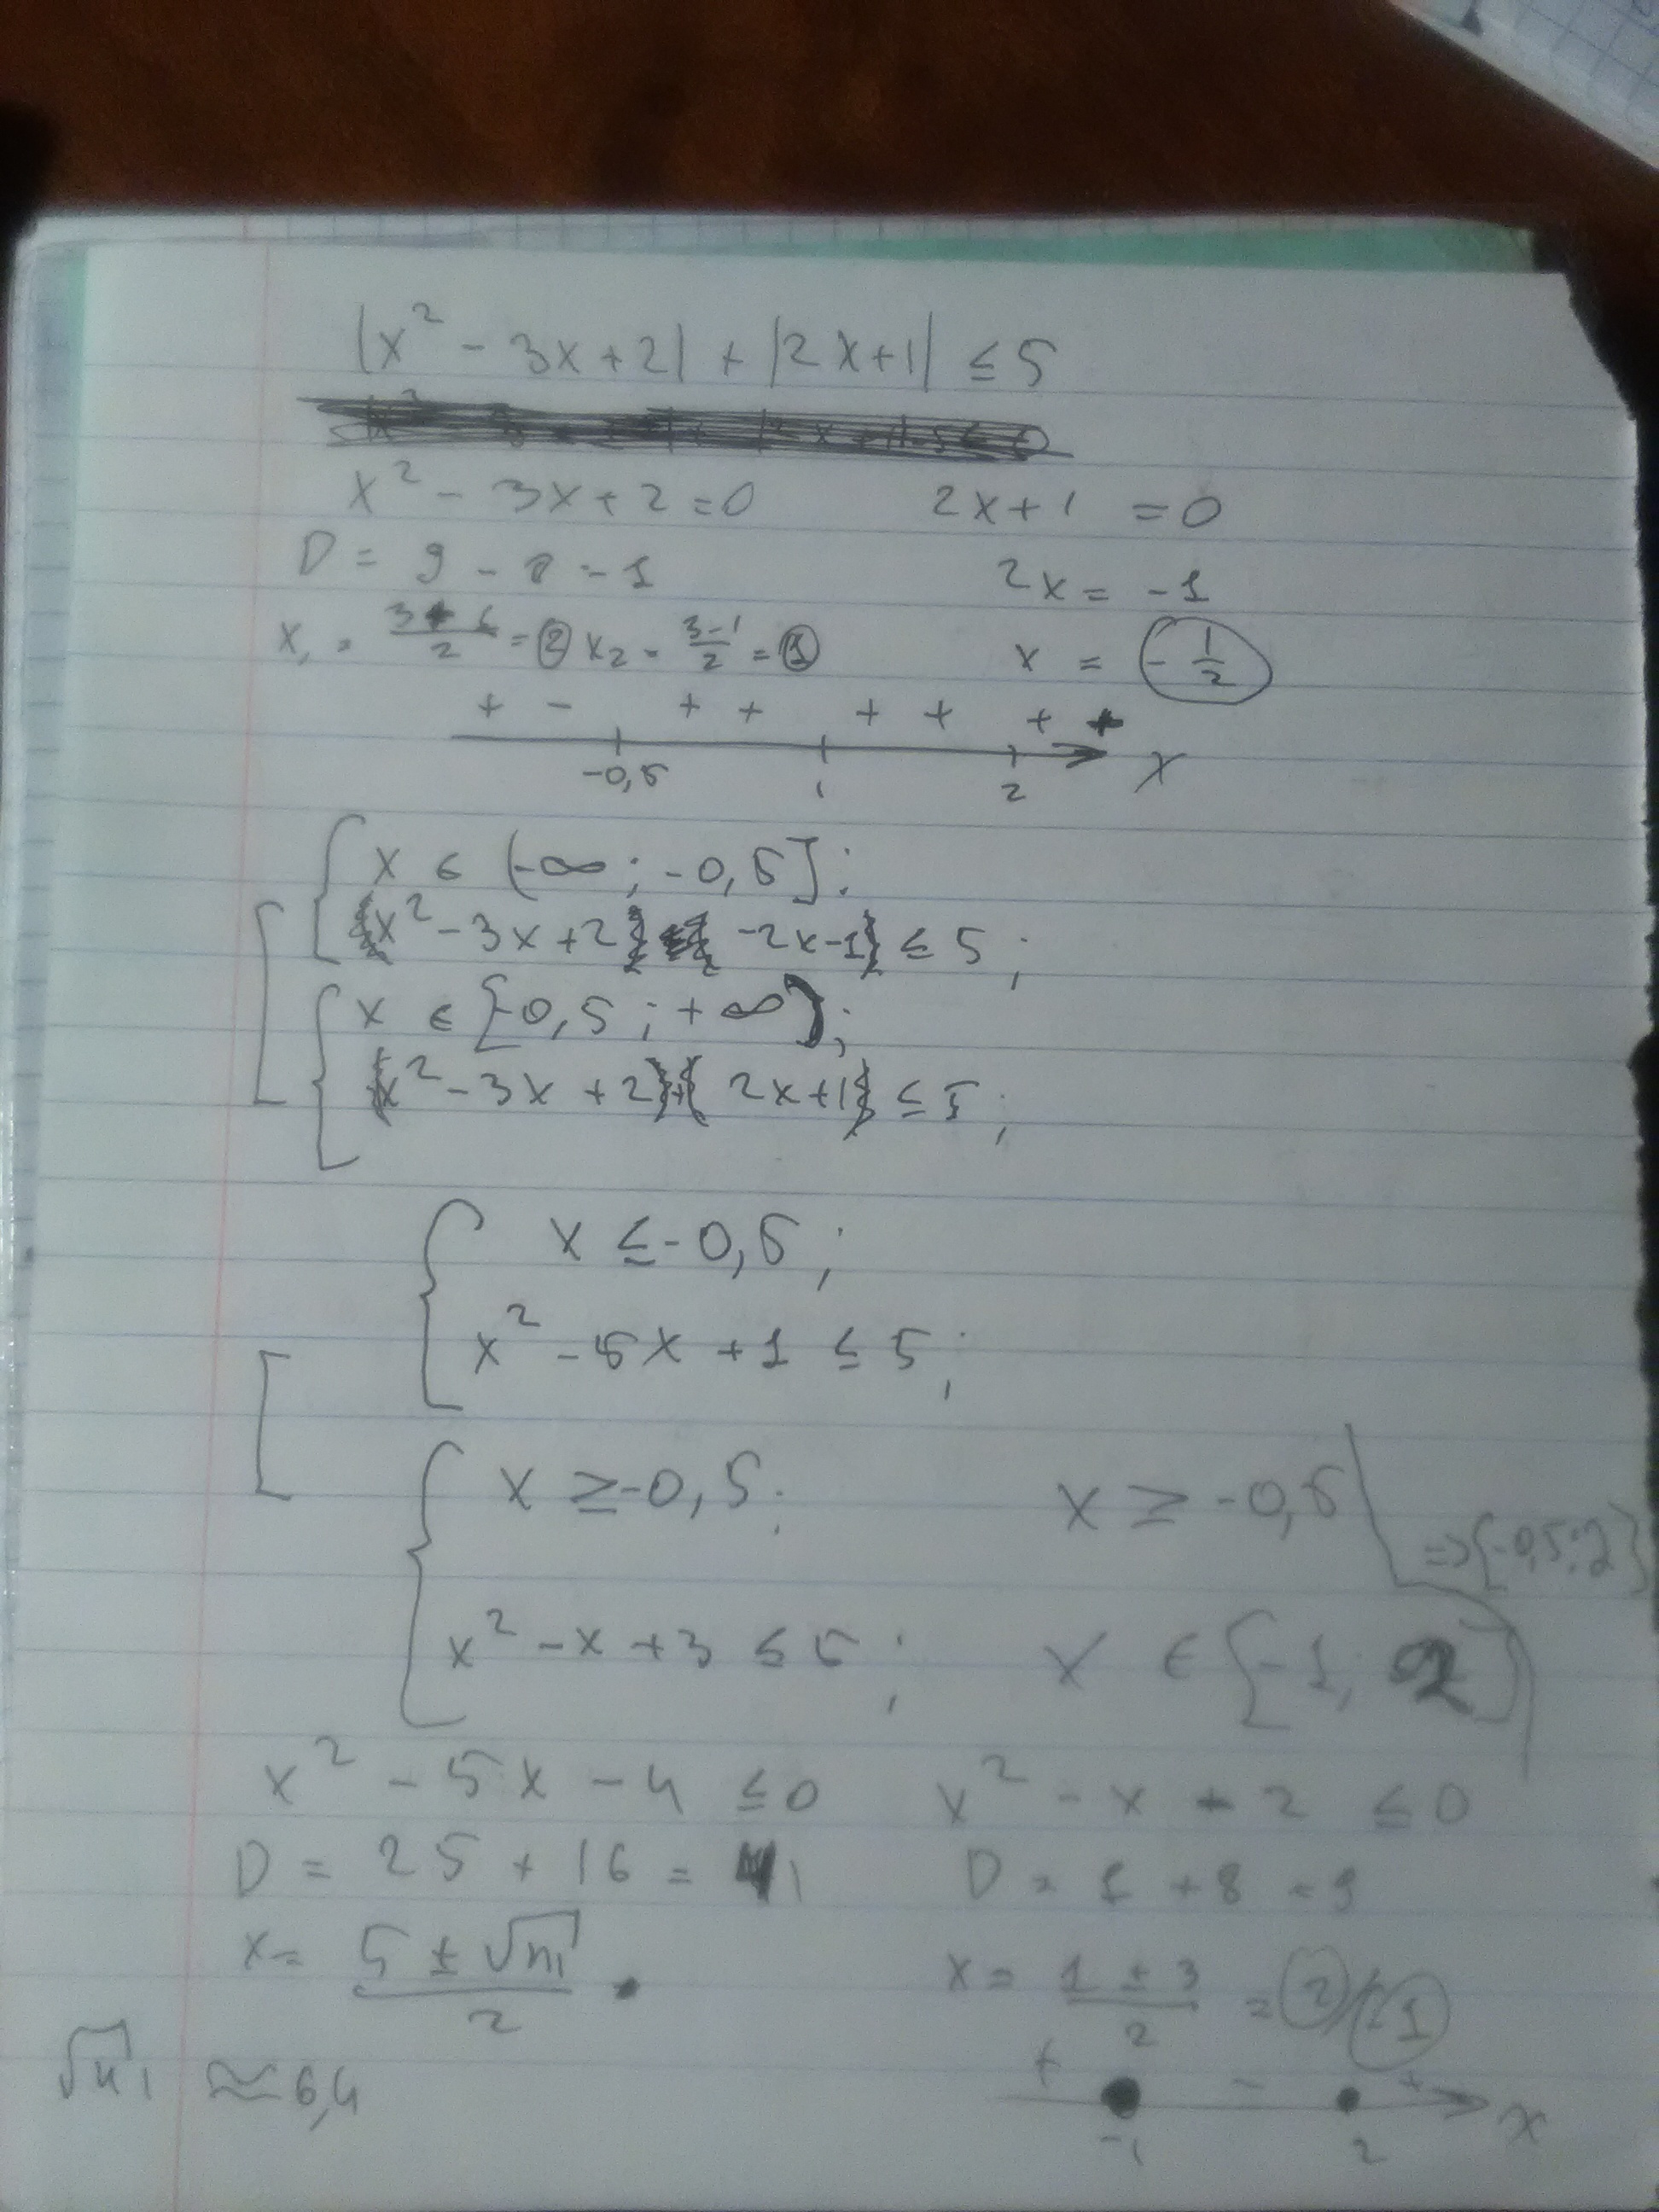 |x² - 3x + 2| + |2x+1| ≤ 5
x² - 3x + 2 = 0 2x + 1 = 0
D = 9 - 8 = 1 2x = -1
x₁ = (3+1)/2 = 2 x₂ = (3-1)/2 = 1 x = -1/2
+ - + + + + + +
-0,5 1 2 x
x ∈ (-∞; -0,5];
x² - 3x + 2 - 2x - 1 ≤ 5;
x ∈ [-0,5; +∞);
x² - 3x + 2 + 2x + 1 ≤ 5;
x ≤ -0,5;
x² - 5x + 1 ≤ 5;
x ≥ -0,5; x ≥ -0,5 => [-0,5; 2]
x² - x + 3 ≤ 5; x ∈ [-1; 2]
x² - 5x - 4 ≤ 0 x² - x - 2 ≤ 0
D = 25 + 16 = 41 D = 1 + 8 = 9
x = (5 ± √41)/2 x = (1 ± 3)/2 = 2/-1
√41 ≈ 6,4 + - + x
-1 2